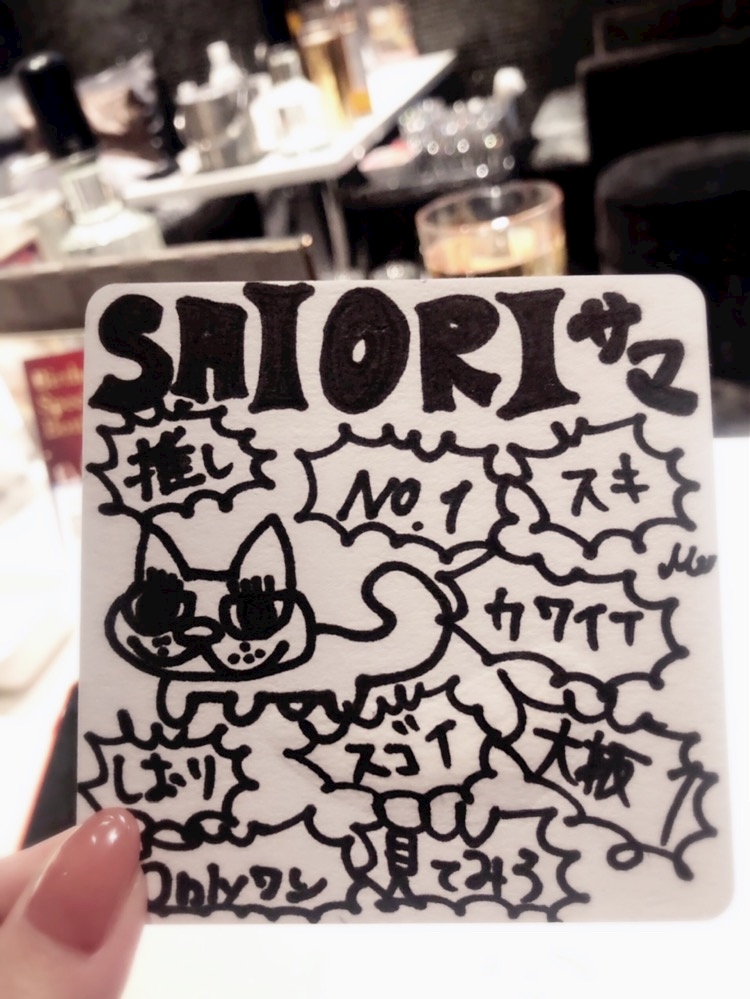 SAIORIサマ
推し
NO.1
スキ
カワイイ
しおり
スゴイ
Onlyワン
見てみろ